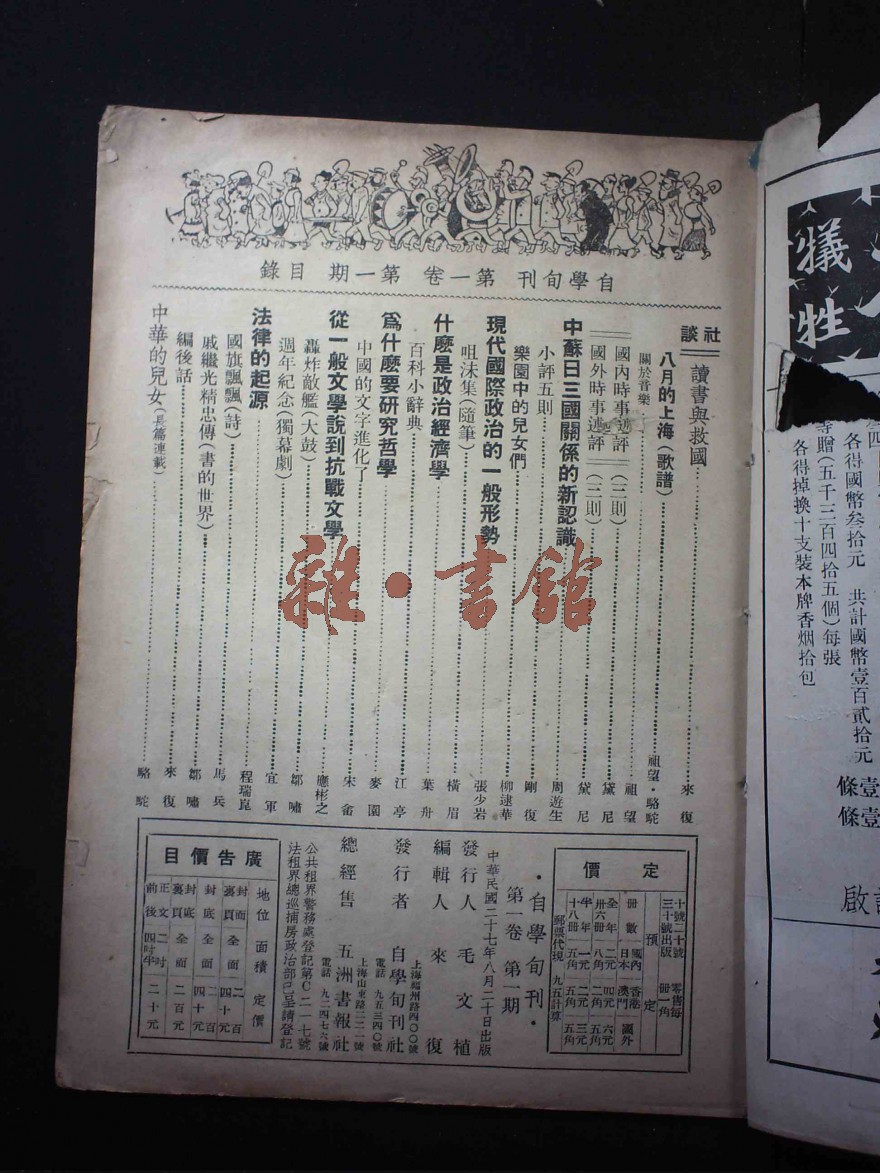 自學旬刊 第一卷 第一期 目錄
社談
讀書與救國 來復
八月的上海(歌譜) 祖望·駱駝
關於音樂 祖望
國內時事述評(三則) 黛尼
國外時事述評(三則) 黛尼
中蘇日三國關係的新認識 周遊生
小評五則 剛復
樂園中的兒女們 柳逮華
現代國際政治的一般形勢 張少岩
咀沫集(隨筆) 橫眉
什麽是政治經濟學 葉舟
百科小辭典 江亭
爲什麽要研究哲學 麥園
中國的文字進化了 宋畬
從一般文學說到抗戰文學 應彬之
轟炸敵艦(大鼓) 鄒嘯
週年紀念(獨幕劇) 宜軍
法律的起源 程瑞崑
國旗飄飄(詩) 馬兵
戚繼光精忠傳(書的世界) 鄒嘯
編後話 來復
中華的兒女(長篇連載) 駱駝
定價
十號二十號三十號出版
零售每冊一角
預定
冊數 國內日本 香港澳門 國外
全年卅六冊 二元八角 四元二角 六元五角
半年十八冊 一元五角 二元五角 三元五角
郵票代現 九五計算
·自學旬刊·
第一卷 第一期
中華民國二十七年八月二十日出版
發行人 毛文植
編輯人 來復
上海福州路四〇〇號
發行者 自學旬刊社
電話 九五三四〇號
上海山東路二二一號
總經售 五洲書報社
電話 九二四七六號
公共租界警務處登記第C二一七號
法租界總巡捕房政治部已呈請登記
廣告價目
地位 面積 定價
封面裏頁 全面 二百四十元
封底 全面 二百四十元
封底裏頁 全面 二百元
正文前後 二吋四吋半 二十元
犧牲
等贈(五千三百四拾五個)每張
各得國幣叁拾元 共計國幣壹百貳拾元
各得掉換十支裝本牌香烟拾包
條壹
條壹
啟